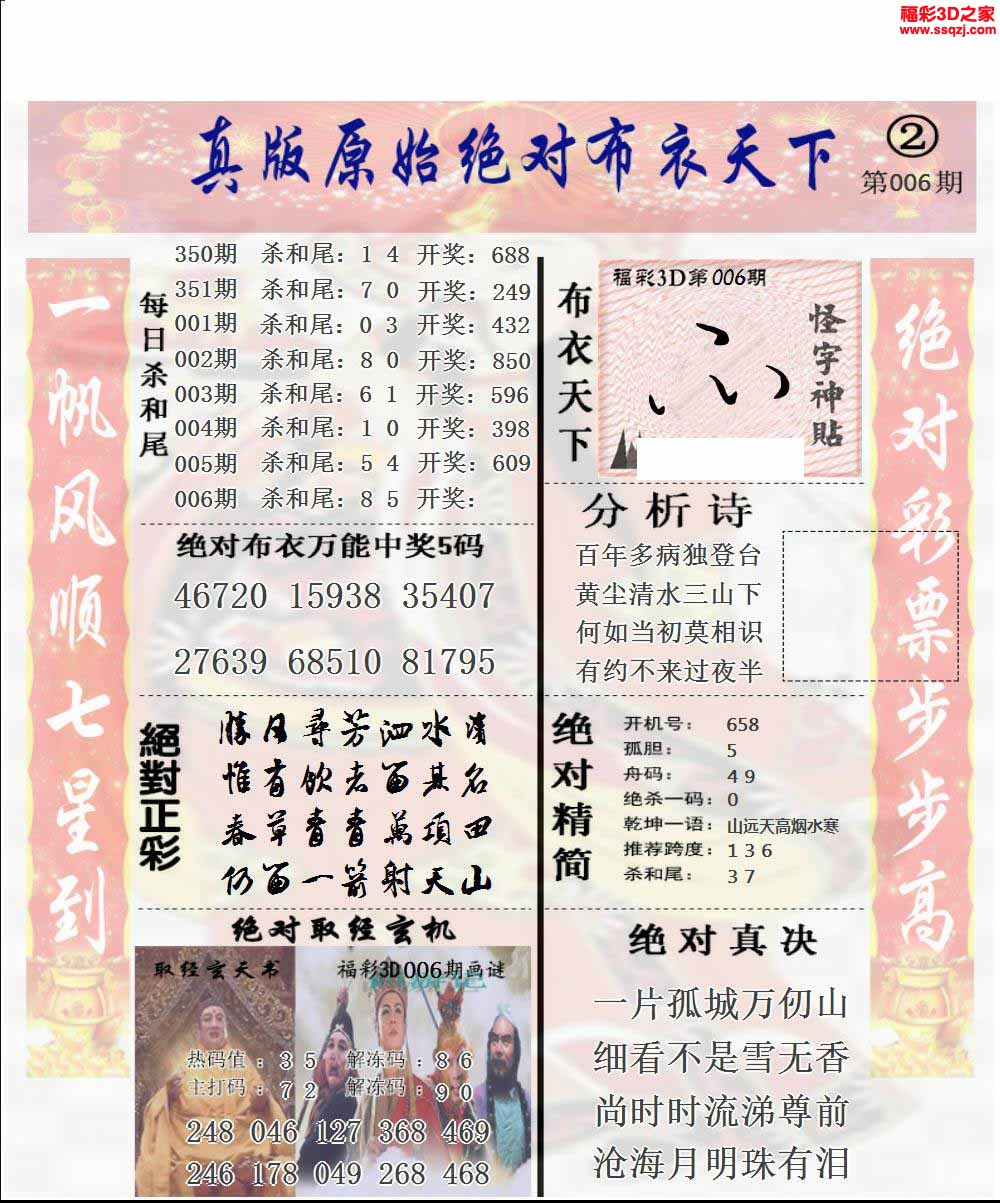 福彩3D之家
www.ssqzj.com
真版原始绝对布衣天下
②
第006期
一帆风顺七星到
每日杀和尾
350期 杀和尾：1 4 开奖：688
351期 杀和尾：7 0 开奖：249
001期 杀和尾：0 3 开奖：432
002期 杀和尾：8 0 开奖：850
003期 杀和尾：6 1 开奖：596
004期 杀和尾：1 0 开奖：398
005期 杀和尾：5 4 开奖：609
006期 杀和尾：8 5 开奖：
绝对布衣万能中奖5码
46720 15938 35407
27639 68510 81795
絕對正彩
勝日尋芳泗水濱
惟有飲者留其名
春草青青萬項田
仍留一箭射天山
绝对取经玄机
取经玄天书
福彩3D006期画谜
热码值：3 5 解冻码：8 6
主打码：7 2 解冻码：9 0
248 046 127 368 469
246 178 049 268 468
布衣天下
福彩3D第006期
怪字神貼
分析诗
百年多病独登台
黄尘清水三山下
何如当初莫相识
有约不来过夜半
绝对精简
开机号：658
孤胆：5
舟码：4 9
绝杀一码：0
乾坤一语：山远天高烟水寒
推荐跨度：1 3 6
杀和尾：3 7
绝对真决
一片孤城万仞山
细看不是雪无香
尚时时流涕尊前
沧海月明珠有泪
绝对彩票步步高